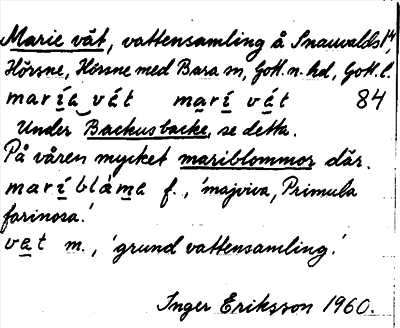 Marie våt, vattensamling å Snauvalds 1⁴,
Hörsne, Hörsne med Bara sn, Gotl. n. hd, Gotl. l.
maría vát marí vát 84
Under Backusbacke, se detta.
På våren mycket mariblommor där.
maríblåmą f., 'majviva, Primula
farinosa.'
vat m., 'grund vattensamling.'
Inger Eriksson 1960.